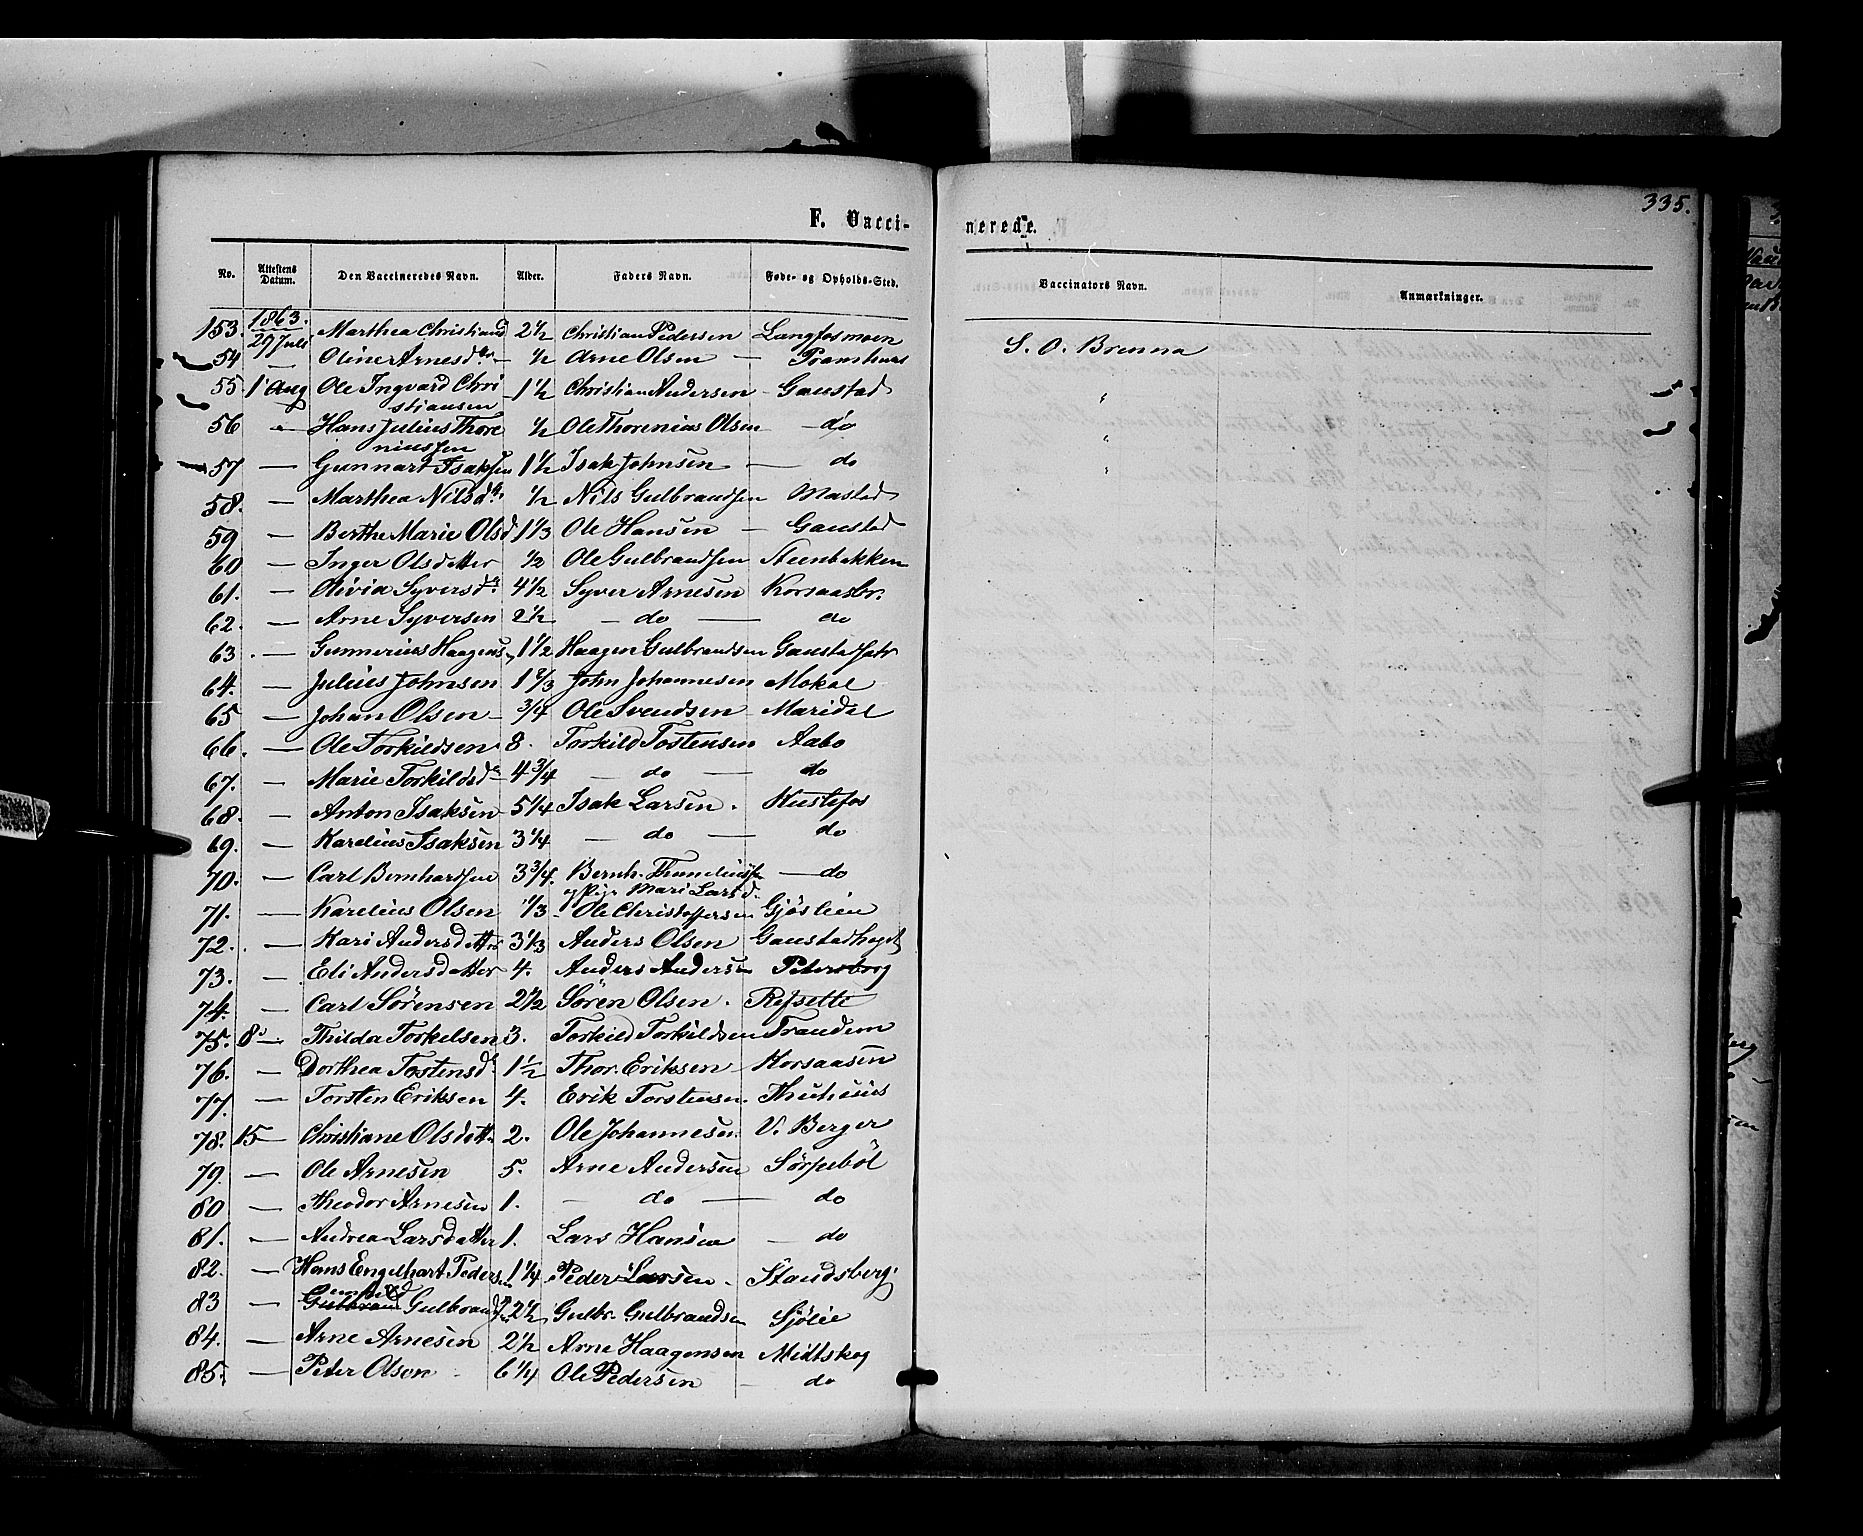 335.
F. Vacci-
nerede.
No. Attestens Datum. Den Vaccineredes Navn. Alder. Faders Navn. Føde- og Opholds-Sted. Vaccinators Navn. Anmærkninger.
1863.
153. 29 Juli Marthea Christiansd 2½ Christian Pedersen Langfosmoen
54 — Oline Arnesdtr — ½ Arne Olsen — S. O. Brenna
55. 1 Aug Ole Ingvard Chri 1½ Christian Andersen — Gaustad
stiansen
56 — Hans Julius Thore ½ Ole Thorenius Olsen — do
niussen
57 — Gunnart Isaksen 1½ Isak Johnsen — do
58. — Marthea Nilsdtr ½ Nils Gulbrandsen Mastad
59 — Berthe Marie Olsd 1⅓ Ole Hansen — Gaustad
60 — Inger Olsdatter ½ Ole Gulbrandsen Steenbakken
61. — Olivia Syversdtr 4½ Syver Arnesen Korsaasbr.
62. — Arne Syversen 2½ — do — do
63. — Gunnerius Haagens 1½ Haagen Gulbrandsen
64. — Julius Johnsen 1⅔ John Johannesen Mokal
65 — Johan Olsen — ¾ Ole Svendsen — Maridal
66. — Ole Torkildsen 8. Torkild Tostensen Aabo
67. — Marie Torkildsdr 4¾ — do — do
68. — Anton Isaksen 5¼ Isak Larsen. Kustefos
69. — Karelius Isaksen 3¼ — do — do
70. — Carl Bernhardsen 3¾. Bernh. — do
og Pige Mari Larsd.
71. — Karelius Olsen ⅓ Ole Christoffersen Gjøslien
72. — Kari Andersdatter 3⅓ Anders Olsen Gaustadhagt
73. — Eli Andersdatter 4. Anders Andersen Petersborg
74. — Carl Sörensen 2½ Sören Olsen. Refsette
75. 8 — Thilda Torkelsen 3. Torkild Torkildsen Trandem
76. — Dorthea Tostensdr 1½ Thor. Eriksen Korsaasen
77. — Torsten Eriksen 4. Erik Torstensen. Thuhuus
78. 15 — Christiane Olsdatt. 2. Ole Johannesen V. Berger
79. — Ole Arnesen 5. Arne Andersen Sörpeböl
80 — Theodor Arnesen 1. — do — do
81. — Andrea Larsdatter 1. Lars Hansen — do
82. — Hans Engelhart Peders. 1¼ Peder Larsen — Standsberg
83 — Gulbrand Gulbrands 2½ Gulbr. Gulbrandsen Sjölie
84. — Arne Arnesen 2½ Arne Haagensen Midtskog
85. — Peter Olsen 6¼ Ole Pedersen — do